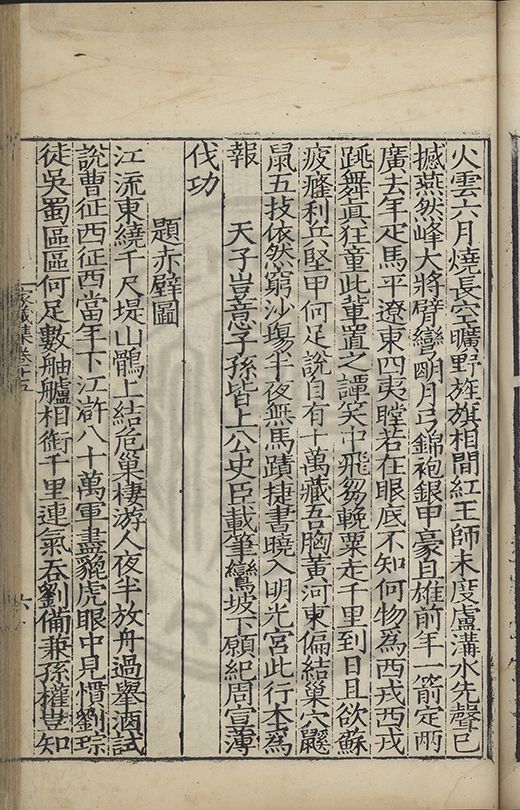 火雲六月燒長空曠野旌旗相間紅王師未度盧溝水先聲已
撼燕然峰大將臂彎明月弓錦袍銀甲豪且雄前年一箭定兩
廣去年疋馬平遼東四夷瞠若在眼底不知何物為西戎西戎
跳舞真狂童此輩置之譚笑中飛芻輓粟走千里到日且欲蘇
疲癃利兵堅甲何足說自有十萬藏吾胸黃河東偏結巢穴鼴
鼠五技依然窮沙場半夜無馬蹟捷書曉入明光宮此行本為
報 天子豈意子孫皆上公史臣載筆鑾坡下願紀周宣薄
伐功
題赤壁圖
江流東繞千尺堤山鶻上結危巢棲游人夜半放舟過舉酒試
說曹征西征西當年下江滸八十萬軍盡貔虎眼中見慣劉琮
徒吳蜀區區何足數舳艫相銜千里連氣吞劉備兼孫權豈知
家藏集卷十五
六